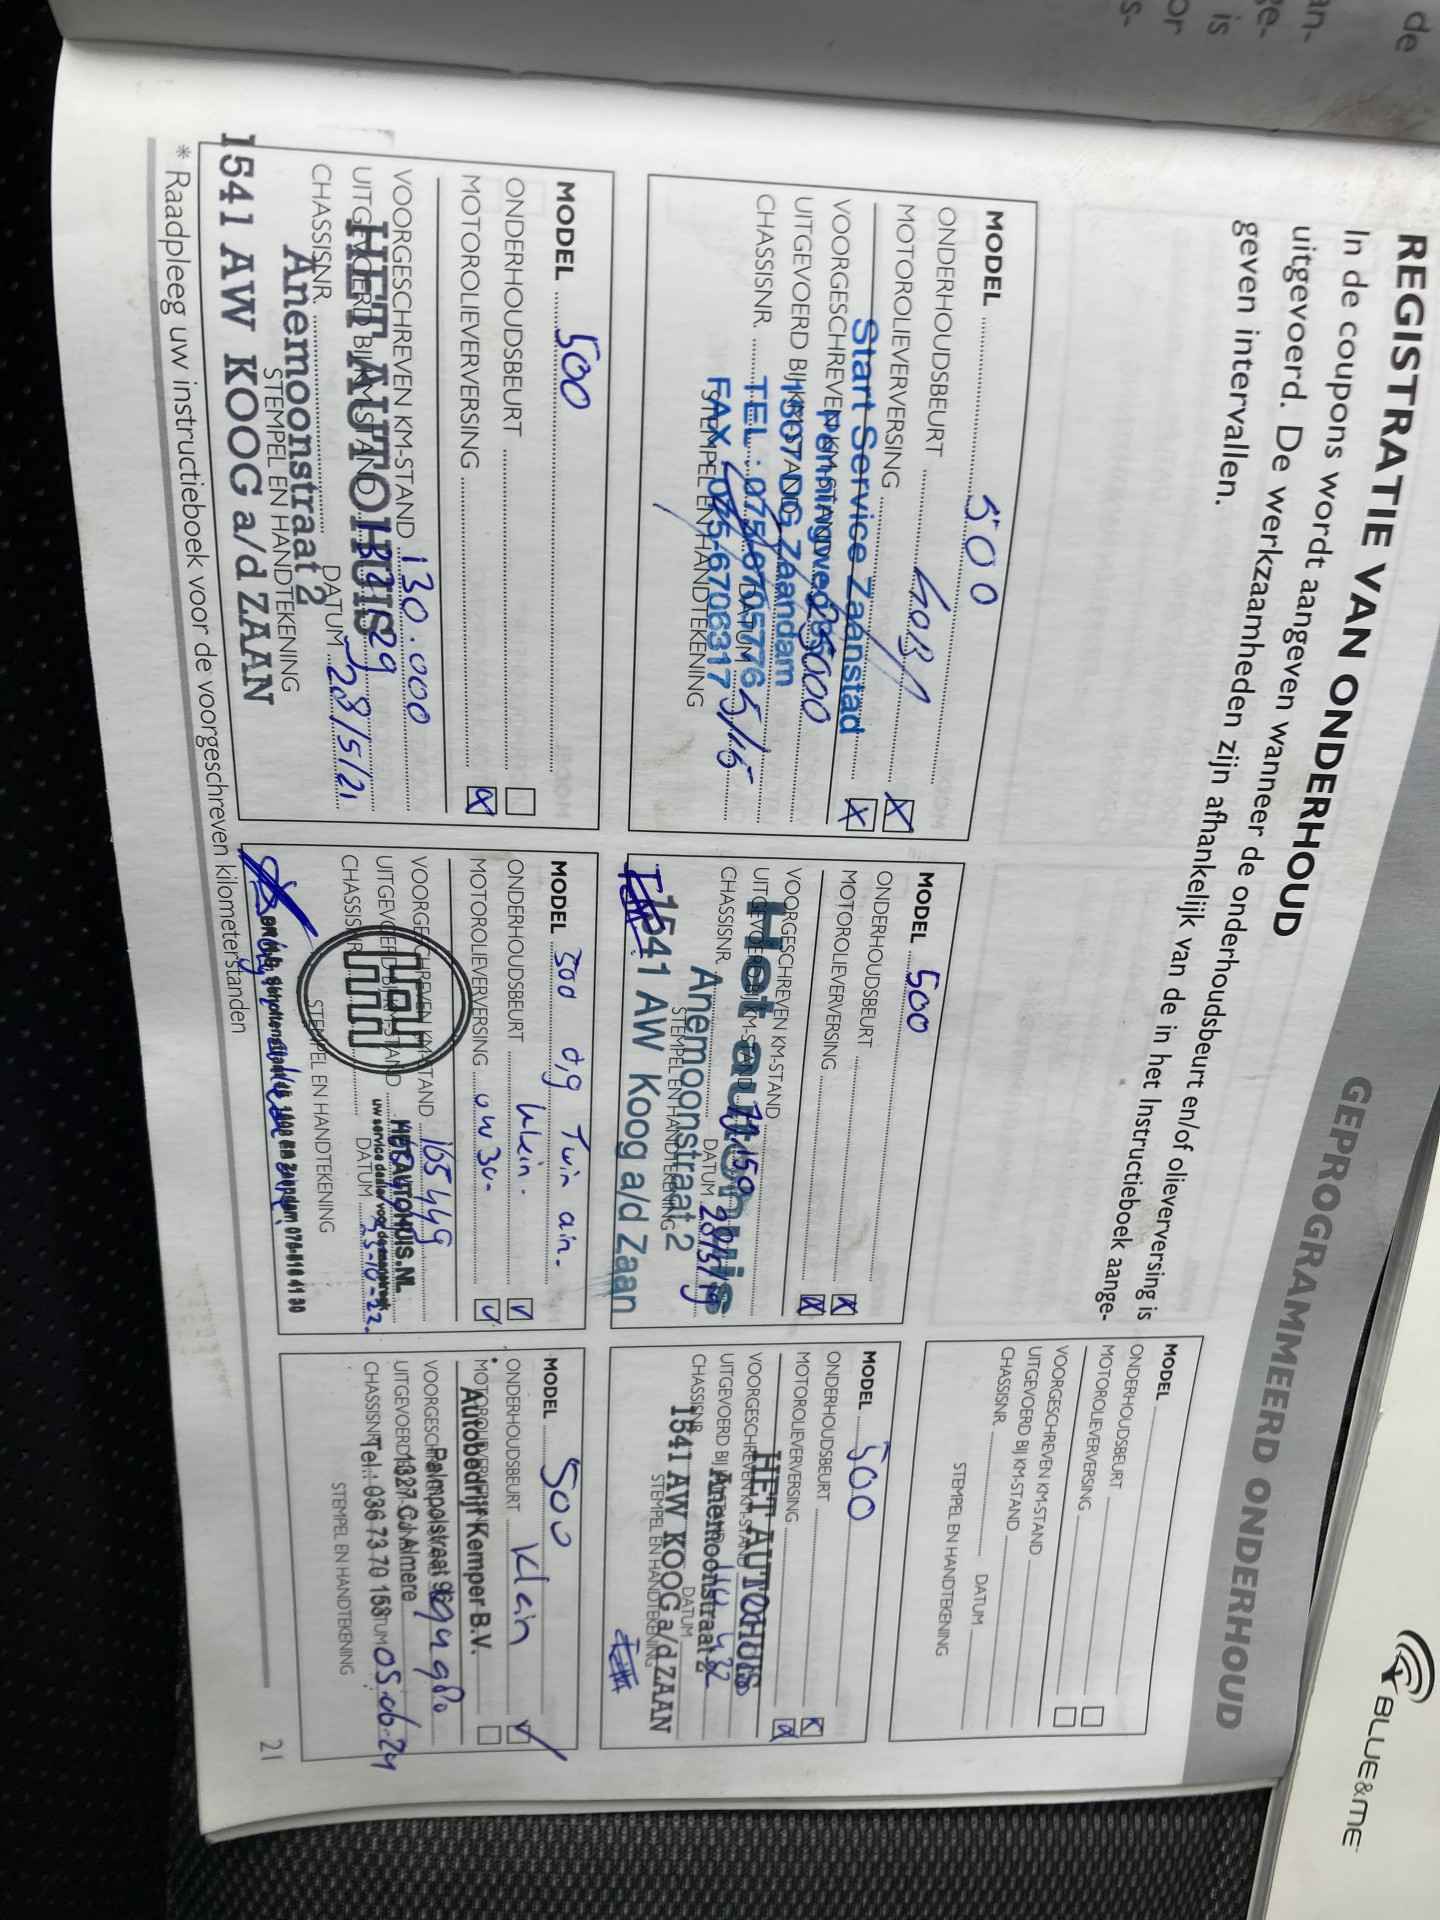 de
an-
ge-
is
or
s-
GEPROGRAMMEERD ONDERHOUD
REGISTRATIE VAN ONDERHOUD
In de coupons wordt aangegeven wanneer de onderhoudsbeurt en/of olieverversing is
uitgevoerd. De werkzaamheden zijn afhankelijk van de in het Instructieboek aange-
geven intervallen.
MODEL
ONDERHOUDSBEURT
MOTOROLIEVERVERSING
VOORGESCHREVEN KM-STAND
UITGEVOERD BIJ KM-STAND
CHASSISNR. DATUM
STEMPEL EN HANDTEKENING
MODEL 500
ONDERHOUDSBEURT X
MOTOROLIEVERVERSING X
VOORGESCHREVEN KM-STAND
UITGEVOERD BIJ KM-STAND
CHASSISNR. DATUM
STEMPEL EN HANDTEKENING
Start Service Zaanstad
Penningweg
1507 DG Zaandam
TEL. 075-6705776
FAX 075-6706317
MODEL 500
ONDERHOUDSBEURT X
MOTOROLIEVERVERSING X
VOORGESCHREVEN KM-STAND
UITGEVOERD BIJ KM-STAND
CHASSISNR. DATUM 28/5/19
STEMPEL EN HANDTEKENING
Het autohuis
Anemoonstraat 2
1541 AW Koog a/d Zaan
MODEL 500
ONDERHOUDSBEURT X
MOTOROLIEVERVERSING
VOORGESCHREVEN KM-STAND
UITGEVOERD BIJ KM-STAND
CHASSISNR. DATUM
STEMPEL EN HANDTEKENING
HET AUTOHUIS
Anemoonstraat 2
1541 AW KOOG a/d ZAAN
MODEL 500
ONDERHOUDSBEURT
MOTOROLIEVERVERSING
VOORGESCHREVEN KM-STAND 130.000
UITGEVOERD BIJ KM-STAND
CHASSISNR. DATUM 28/5/21
STEMPEL EN HANDTEKENING
HET AUTOHUIS
Anemoonstraat 2
1541 AW KOOG a/d ZAAN
MODEL 500 0,9 Twin air.
ONDERHOUDSBEURT klein.
MOTOROLIEVERVERSING 0W30
VOORGESCHREVEN KM-STAND 165449
UITGEVOERD BIJ KM-STAND
CHASSISNR. DATUM
STEMPEL EN HANDTEKENING
HETAUTOHUIS.NL
MODEL 500
ONDERHOUDSBEURT Klein
MOTOROLIEVERVERSING
VOORGESCHREVEN
UITGEVOERD
CHASSISNR DATUM 05.06.24
STEMPEL EN HANDTEKENING
Autobedrijf Kemper B.V.
Palmpolstraat
1327 CJ Almere
Tel.: 036 73 70 158
* Raadpleeg uw instructieboek voor de voorgeschreven kilometerstanden
21
BLUE&ME